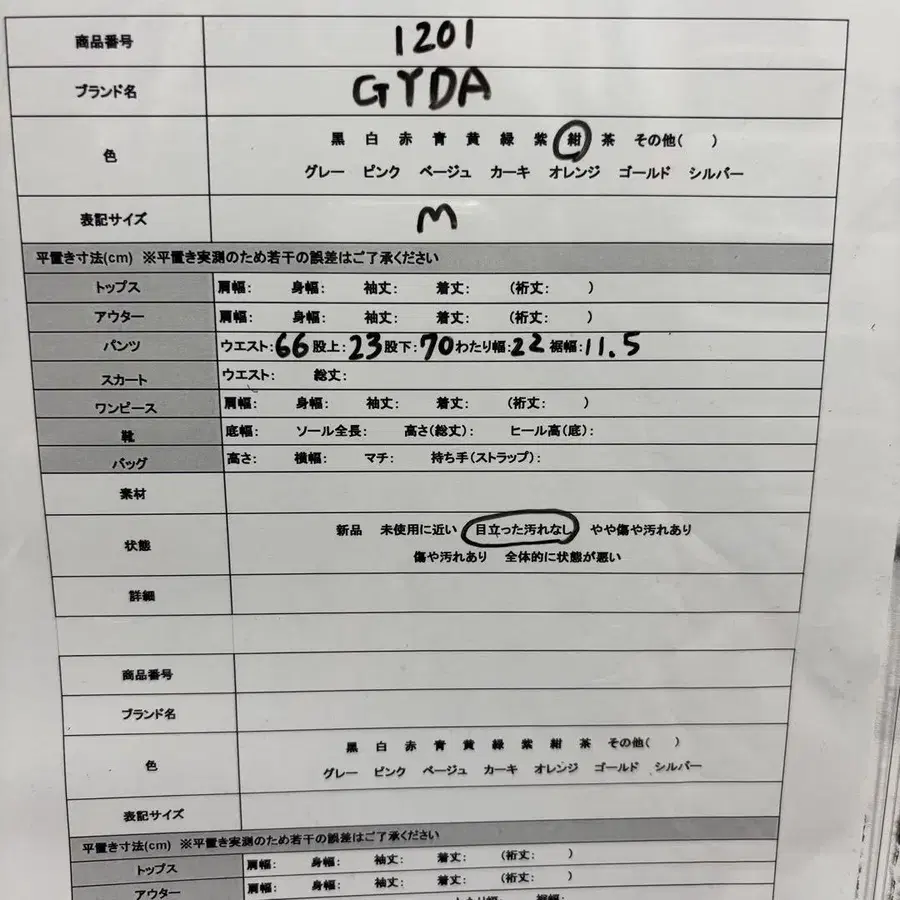 商品番号 1201
ブランド名 GYDA
色 黒 白 赤 青 黄 緑 紫 紺 茶 その他( )
グレー ピンク ベージュ カーキ オレンジ ゴールド シルバー
表記サイズ M
平置き寸法(cm) ※平置き実測のため若干の誤差はご了承ください
トップス 肩幅: 身幅: 袖丈: 着丈: (裄丈: )
アウター 肩幅: 身幅: 袖丈: 着丈: (裄丈: )
パンツ ウエスト:66 股上:23 股下:70 わたり幅:22 裾幅:11.5
スカート ウエスト: 総丈:
ワンピース 肩幅: 身幅: 袖丈: 着丈: (裄丈: )
靴 底幅: ソール全長: 高さ(総丈): ヒール高(底):
バッグ 高さ: 横幅: マチ: 持ち手(ストラップ):
素材
状態 新品 未使用に近い 目立った汚れなし やや傷や汚れあり
傷や汚れあり 全体的に状態が悪い
詳細
商品番号
ブランド名
色 黒 白 赤 青 黄 緑 紫 紺 茶 その他( )
グレー ピンク ベージュ カーキ オレンジ ゴールド シルバー
表記サイズ
平置き寸法(cm) ※平置き実測のため若干の誤差はご了承ください
トップス 肩幅: 身幅: 袖丈: 着丈: (裄丈: )
アウター 肩幅: 身幅: 袖丈: 着丈: (裄丈: )